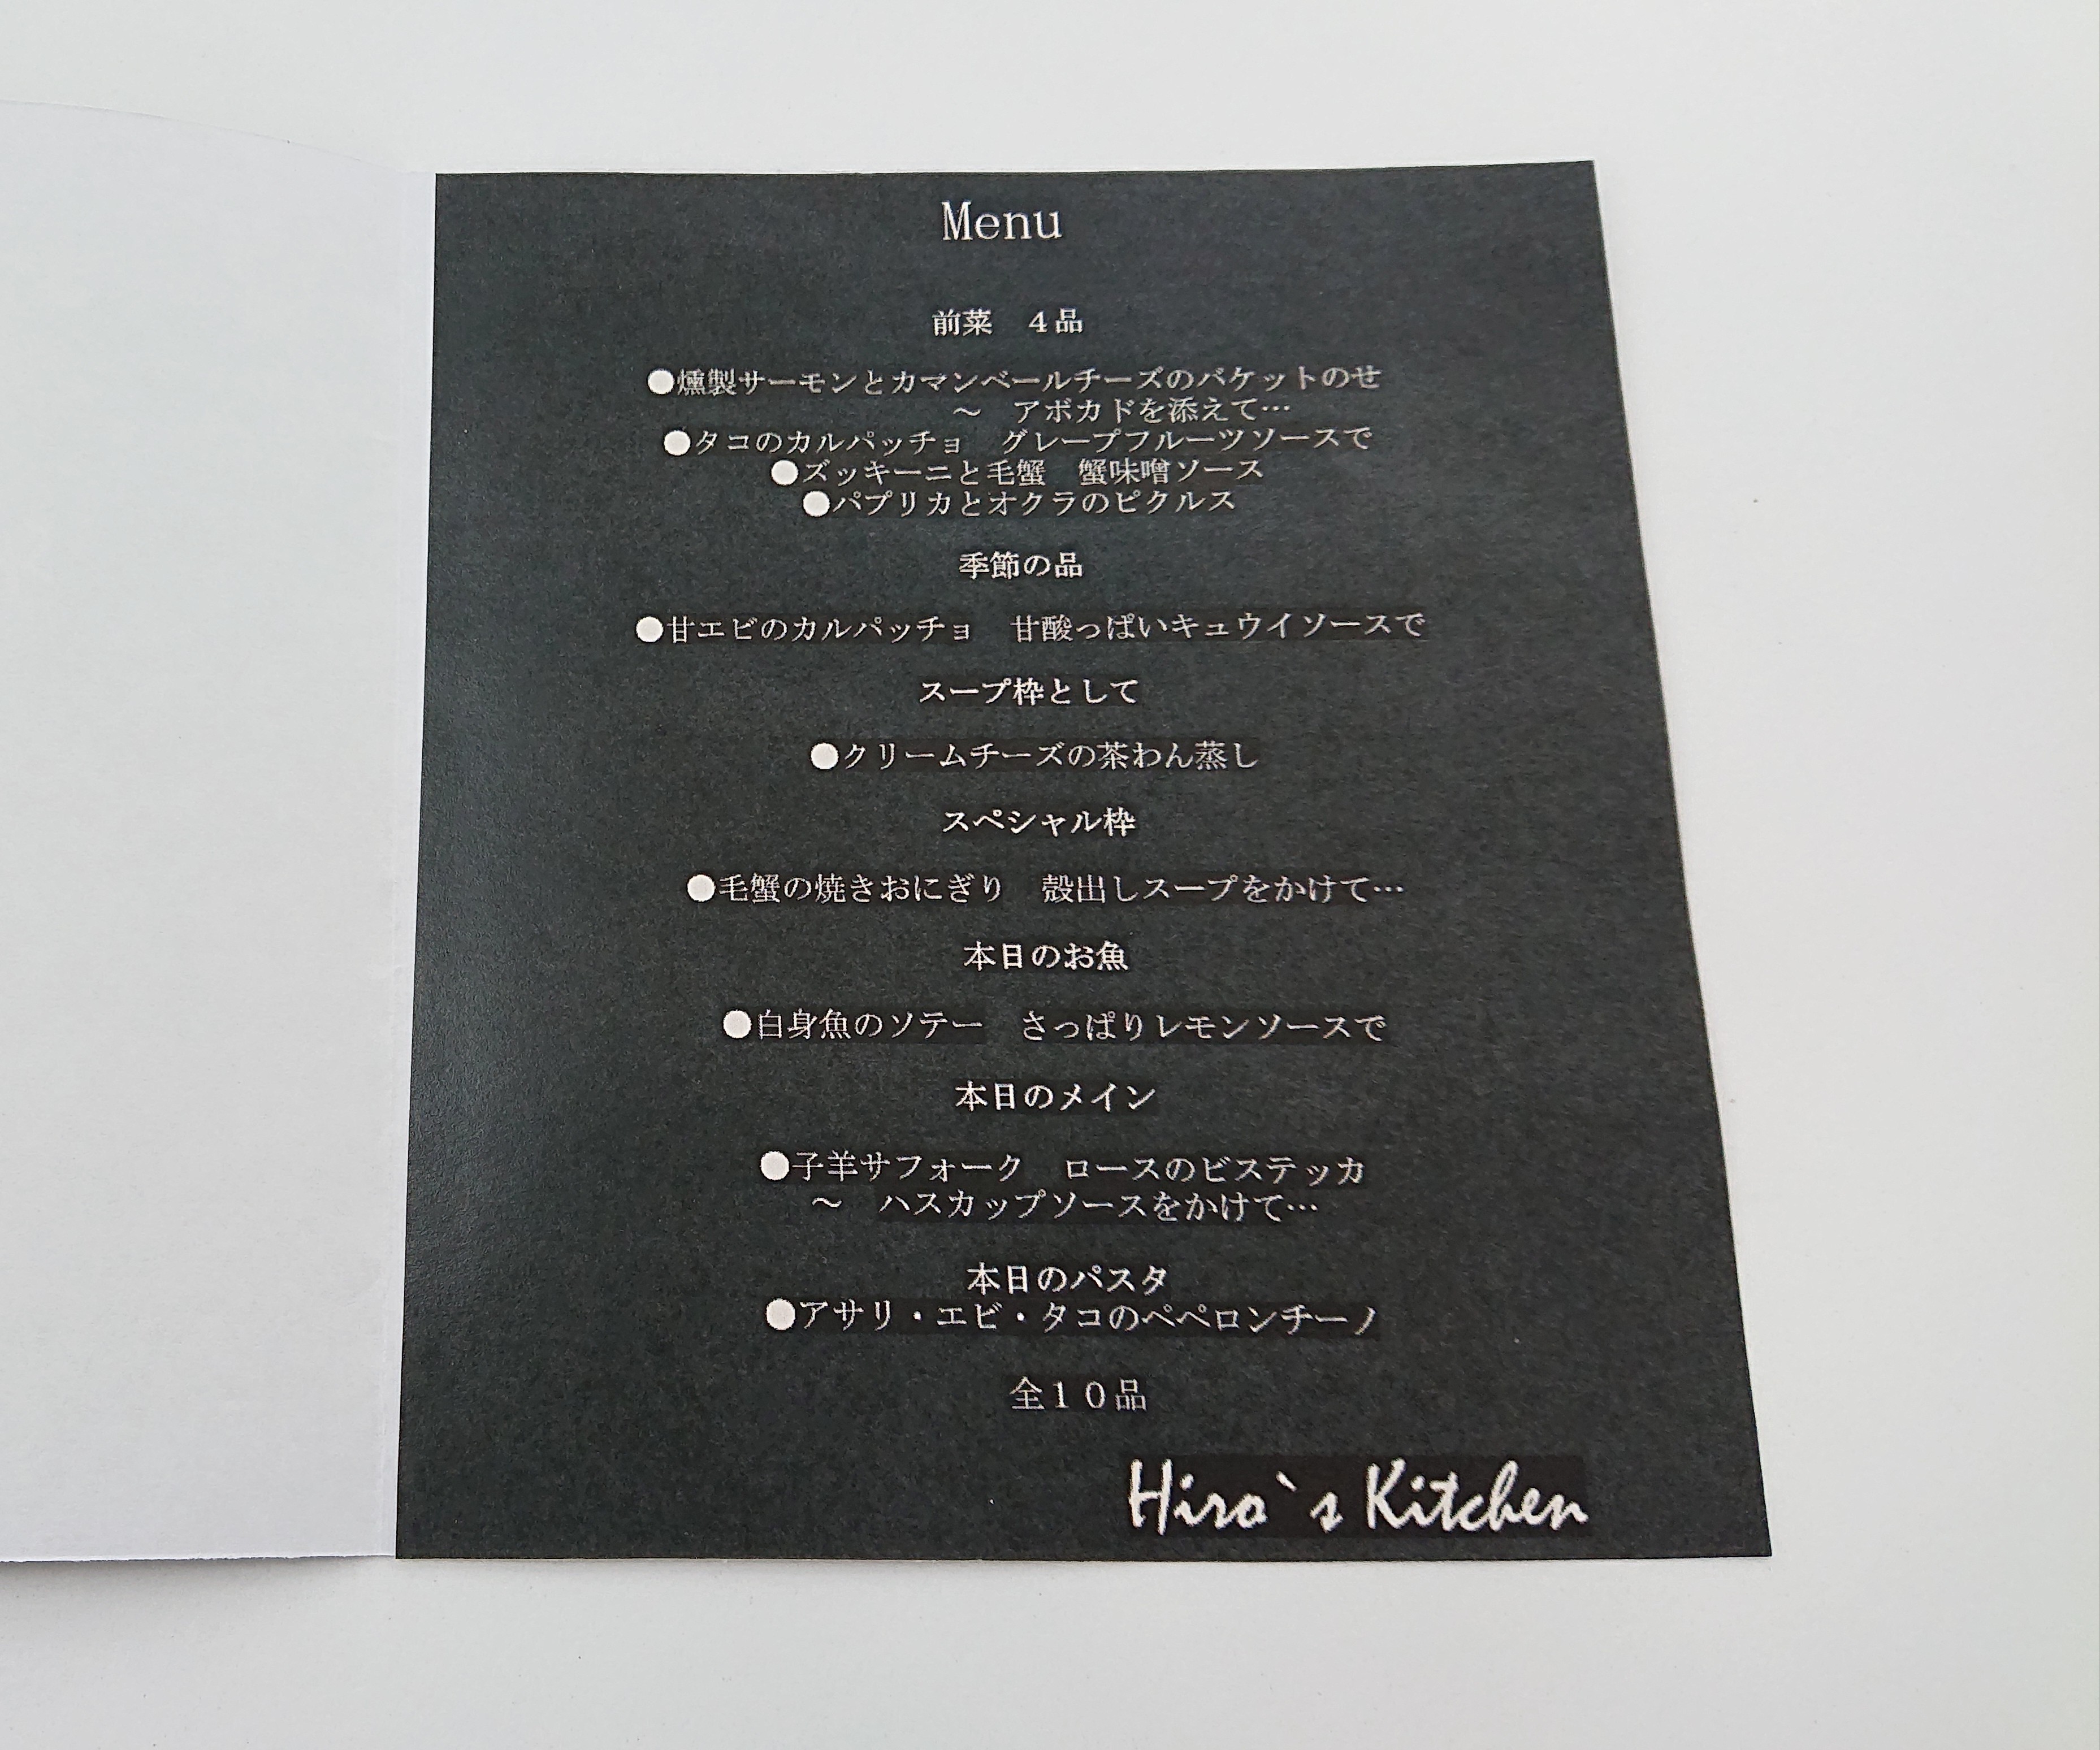 Menu
前菜　４品
●燻製サーモンとカマンベールチーズのバケットのせ
～　アボカドを添えて…
●タコのカルパッチョ　グレープフルーツソースで
●ズッキーニと毛蟹　蟹味噌ソース
●パプリカとオクラのピクルス
季節の品
●甘エビのカルパッチョ　甘酸っぱいキュウイソースで
スープ枠として
●クリームチーズの茶わん蒸し
スペシャル枠
●毛蟹の焼きおにぎり　殻出しスープをかけて…
本日のお魚
●白身魚のソテー　さっぱりレモンソースで
本日のメイン
●子羊サフォーク　ロースのビステッカ
～　ハスカップソースをかけて…
本日のパスタ
●アサリ・エビ・タコのペペロンチーノ
全１０品
Hiro`s Kitchen